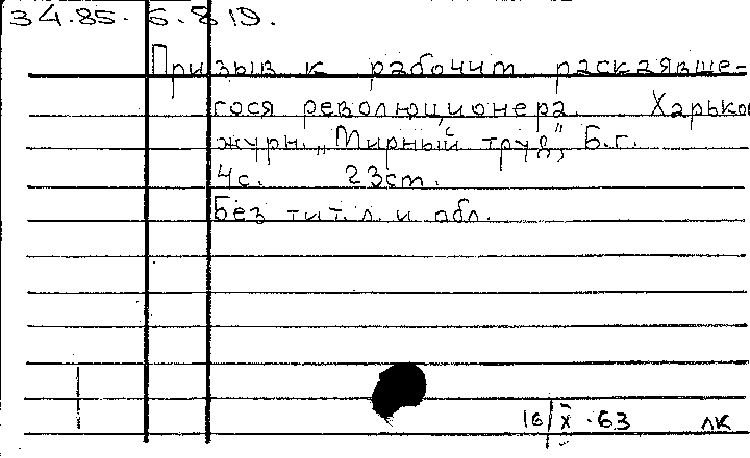 34.85. 5.819.
Призыв к рабочим раскаявше-
гося революционера. Харько
журн. „Мирный труд", Б.г.
4с. 23см.
Без тит. л. и обл.
16/X.63 лк